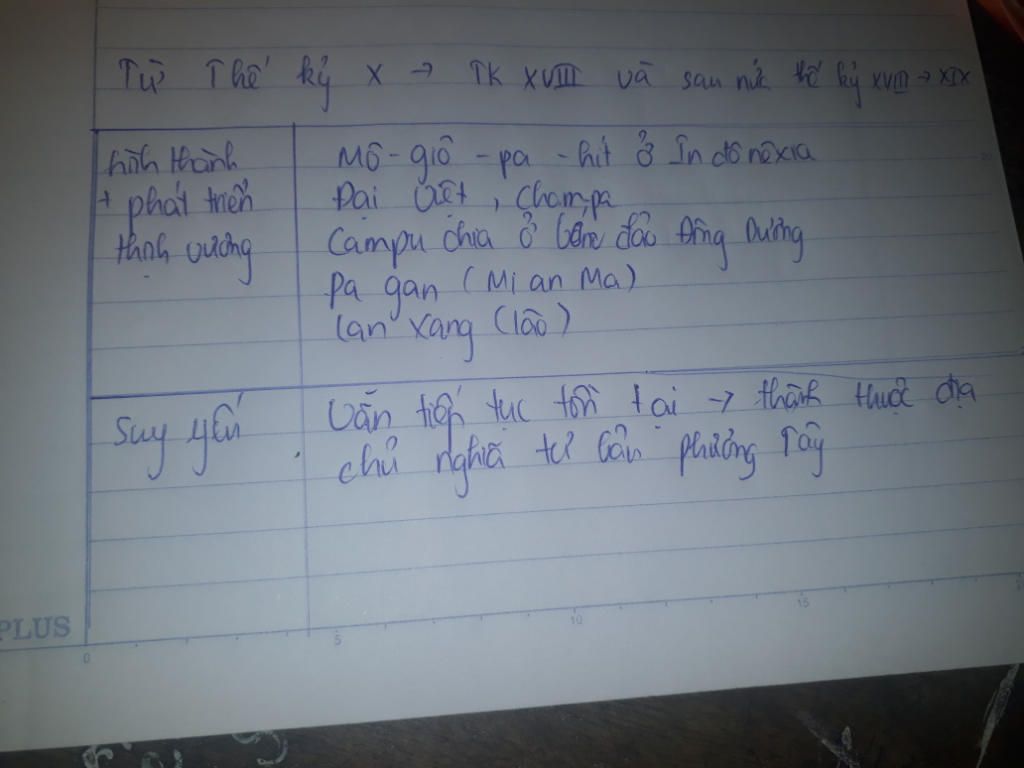 Từ Thế kỷ X → TK XVIII và sau nửa thế kỷ XVIII → XIX
hình thành
+ phát triển
thịnh vương
Mô - giô - pa - hít ở In đô nê xia
Đại Việt, Chăm pa
Campu chia ở bán đảo Đông Dương
Pa gan (Mi an Ma)
Lan xang (lào)
Suy yếu
Vẫn tiếp tục tồn tại → thành thuộc địa
chủ nghĩa tư bản phương Tây
PLUS
0
5
10
15